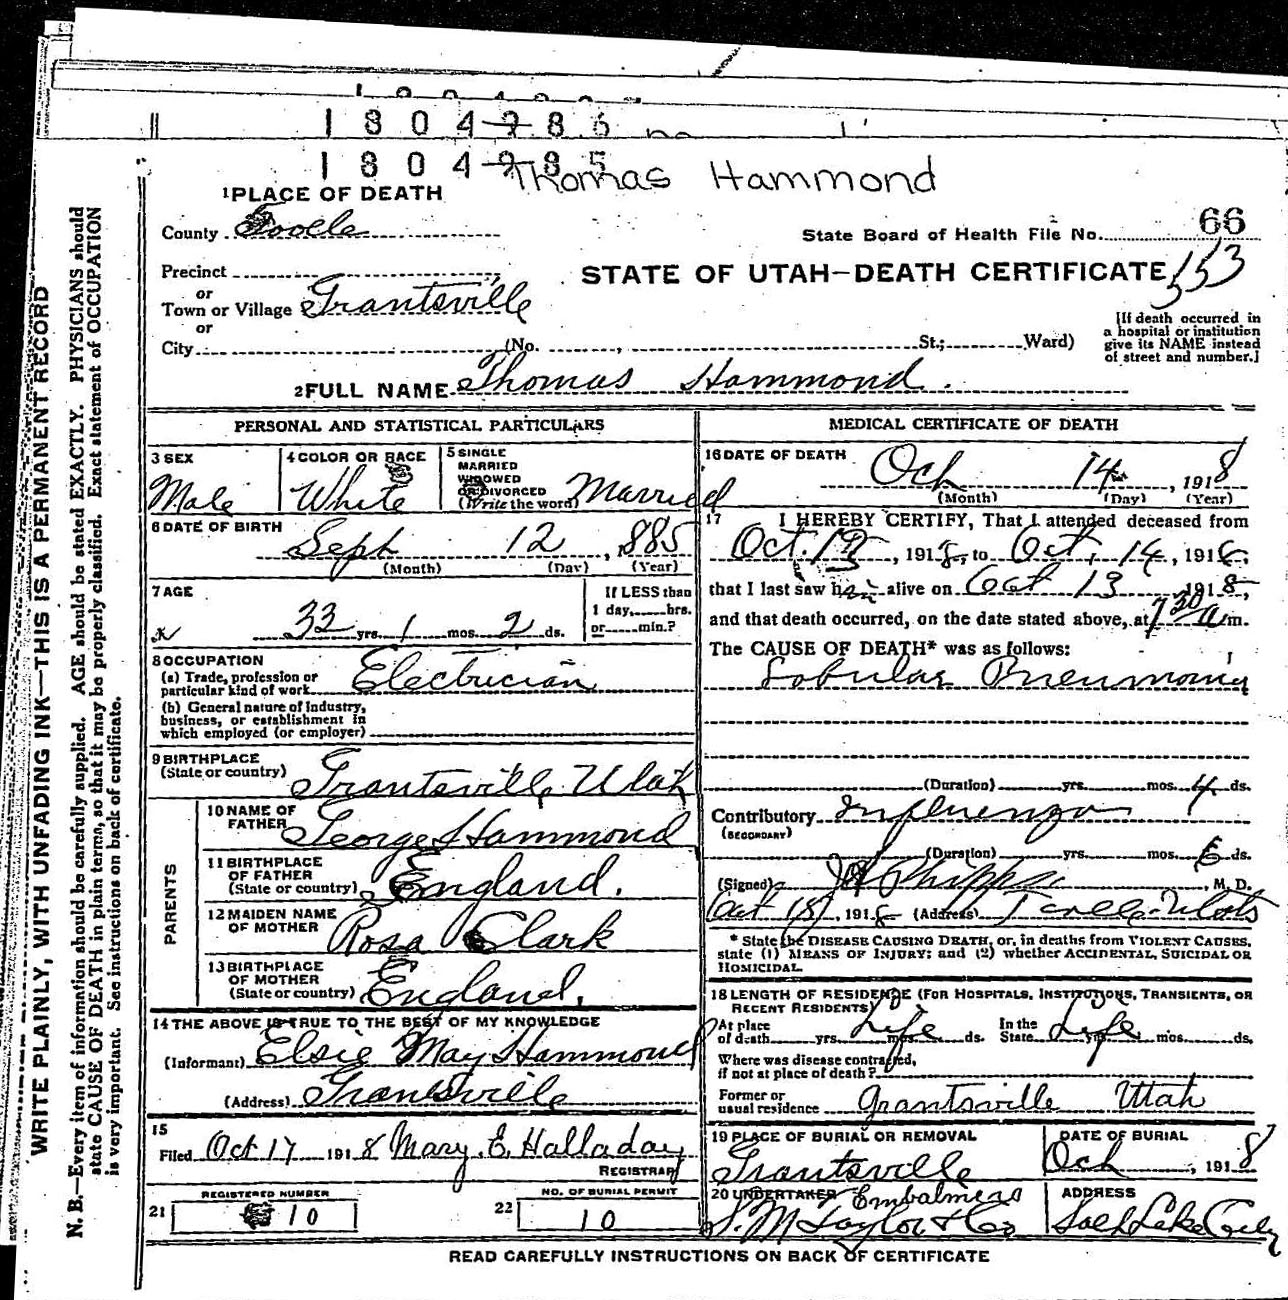 1 8 0 4 2 8 6
1 8 0 4 2 8 5
Thomas Hammond
1 PLACE OF DEATH
County Tooele
State Board of Health File No. 66
Precinct
STATE OF UTAH—DEATH CERTIFICATE 553
or
Town or Village Grantsville
or
City (No. , St.; Ward)
[If death occurred in
a hospital or institution
give its NAME instead
of street and number.]
2 FULL NAME Thomas Hammond.
PERSONAL AND STATISTICAL PARTICULARS
3 SEX Male
4 COLOR OR RACE White
5 SINGLE
MARRIED
WIDOWED
OR DIVORCED
(Write the word) Married
6 DATE OF BIRTH
Sept 12, 1885
(Month) (Day) (Year)
7 AGE
33 yrs. 1 mos. 2 ds.
If LESS than
1 day, hrs.
or min.?
8 OCCUPATION
(a) Trade, profession or
particular kind of work Electrician
(b) General nature of industry,
business, or establishment in
which employed (or employer)
9 BIRTHPLACE
(State or country) Grantsville Utah
PARENTS
10 NAME OF
FATHER George Hammond
11 BIRTHPLACE
OF FATHER
(State or country) England.
12 MAIDEN NAME
OF MOTHER Rosa Clark
13 BIRTHPLACE
OF MOTHER
(State or country) England.
14 THE ABOVE IS TRUE TO THE BEST OF MY KNOWLEDGE
(Informant) Elsie May Hammond
(Address) Grantsville
15
Filed Oct 17 1918 Mary E. Halladay
REGISTRAR
REGISTERED NUMBER
21 10
NO. OF BURIAL PERMIT
22 10
MEDICAL CERTIFICATE OF DEATH
16 DATE OF DEATH
Oct 14, 1918
(Month) (Day) (Year)
17 I HEREBY CERTIFY, That I attended deceased from
Oct., 1918, to Oct, 14, 1918,
that I last saw him alive on Oct 13 1918,
and that death occurred, on the date stated above, at 7 30 a m.
The CAUSE OF DEATH* was as follows:
Lobular Pneumonia
(Duration) yrs. mos. 4 ds.
Contributory Influenza
(SECONDARY)
(Duration) yrs. mos. 6 ds.
(Signed) Phipps, M. D.
Oct, 1918 (Address) Tooele-Utah
* State the DISEASE CAUSING DEATH, or, in deaths from VIOLENT CAUSES,
state (1) MEANS OF INJURY; and (2) whether ACCIDENTAL, SUICIDAL OR
HOMICIDAL.
18 LENGTH OF RESIDENCE (FOR HOSPITALS, INSTITUTIONS, TRANSIENTS, OR
RECENT RESIDENTS)
At place
of death yrs. Life mos. ds.
In the
State Life yrs. mos. ds.
Where was disease contracted,
if not at place of death?
Former or
usual residence Grantsville Utah
19 PLACE OF BURIAL OR REMOVAL
Grantsville
DATE OF BURIAL
Oct, 1918
20 UNDERTAKER Embalmers
S. M. Taylor & Co
ADDRESS
Salt Lake City
READ CAREFULLY INSTRUCTIONS ON BACK OF CERTIFICATE
WRITE PLAINLY, WITH UNFADING INK—THIS IS A PERMANENT RECORD
N. B.—Every item of information should be carefully supplied. AGE should be stated EXACTLY. PHYSICIANS should
state CAUSE OF DEATH in plain terms, so that it may be properly classified. Exact statement of OCCUPATION
is very important. See instructions on back of certificate.